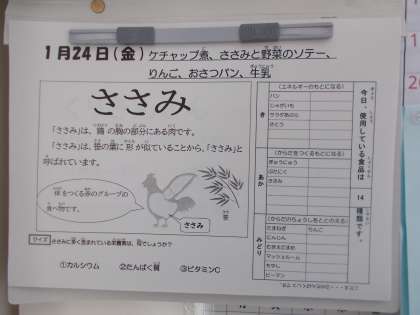 1月24日(金) ケチャップ煮、ささみと野菜のソテー、
りんご、おさつパン、牛乳
ささみ
「ささみ」は、鶏の胸の部分にある肉です。
「ささみ」は、笹の葉に形が似ていることから、「ささみ」と
呼ばれています。
体をつくる赤のグループの
食べ物です。
ささみ
笹
クイズ ささみに多く含まれている栄養素は、何でしょうか?
①カルシウム ②たんぱく質 ③ビタミンC
今日、使用している食品は
14
種類です。
き
(エネルギーのもとになる)
パン
じゃがいも
サラダあぶら
さとう
あか
(からだをつくるもとになる)
ぎゅうにゅう
ぶたにく
ささみ
みどり
(からだのちょうしをととのえる)
たまねぎ りんご
にんじん
マッシュルーム
もやし
ピーマン